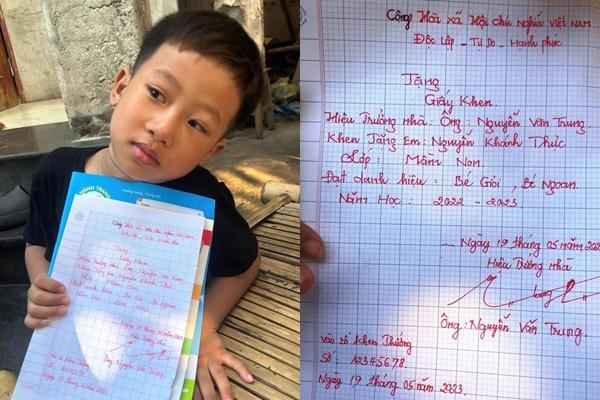 Công Hoà xã Hội chủ nghĩa VIỆT NAM
Độc lập - Tự Do - Hạnh phúc
Tặng
Giấy Khen.
Hiệu Trưởng nhà: Ông: Nguyễn Văn Trung
Khen Tặng Em: Nguyễn Khánh Thức
Lớp: Mầm Non
Đạt danh hiệu: Bé Giỏi, Bé Ngoan.
Năm Học: 2022 - 2023.
..... Ngày 19 tháng 05 năm 2023
Hiệu Trưởng nhà
Ông: Nguyễn Văn Trung.
vào sổ Khen Thưởng
Số: A2345678.
Ngày 19 tháng 05 năm 2023.
HÀNH TRANG
Công Hoà xã Hội chủ nghĩa VIỆT NAM
Tặng
Giấy Khen